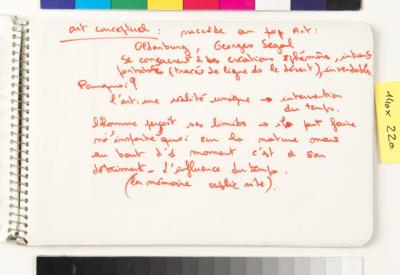 art conceptuel : succède au pop Art:
Oldenburg, Georges Segal
se consacrent à des créations éphémères,
(tracés de ligne ds le désert), invendables
Pourquoi?
l'art: une réalité unique → intervention
du temps.
l'Homme perçoit ses limites → il peut faire
n'importe quoi sur la nature mais
au bout d'1 moment c'est à son
détriment - l'influence du temps.
(la mémoire oublie vite).
140 x 220